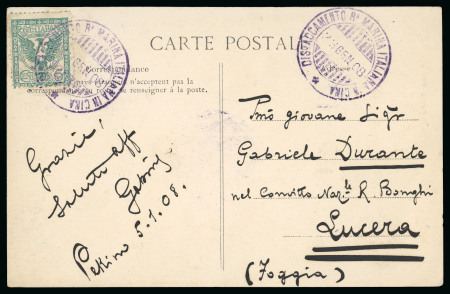 CARTE POSTALE
Correspondance
n'acceptent pas la
se renseigner à la poste.
DISTACCAMENTO Rª MARINA ITALIANA IN CINA
Grazie!
Saluti aff
Pekino 5.1.08.
giovane Sigr
Gabriele Durante
nel Convitto Naz.le R. Bonghi
Lucera
(Foggia)